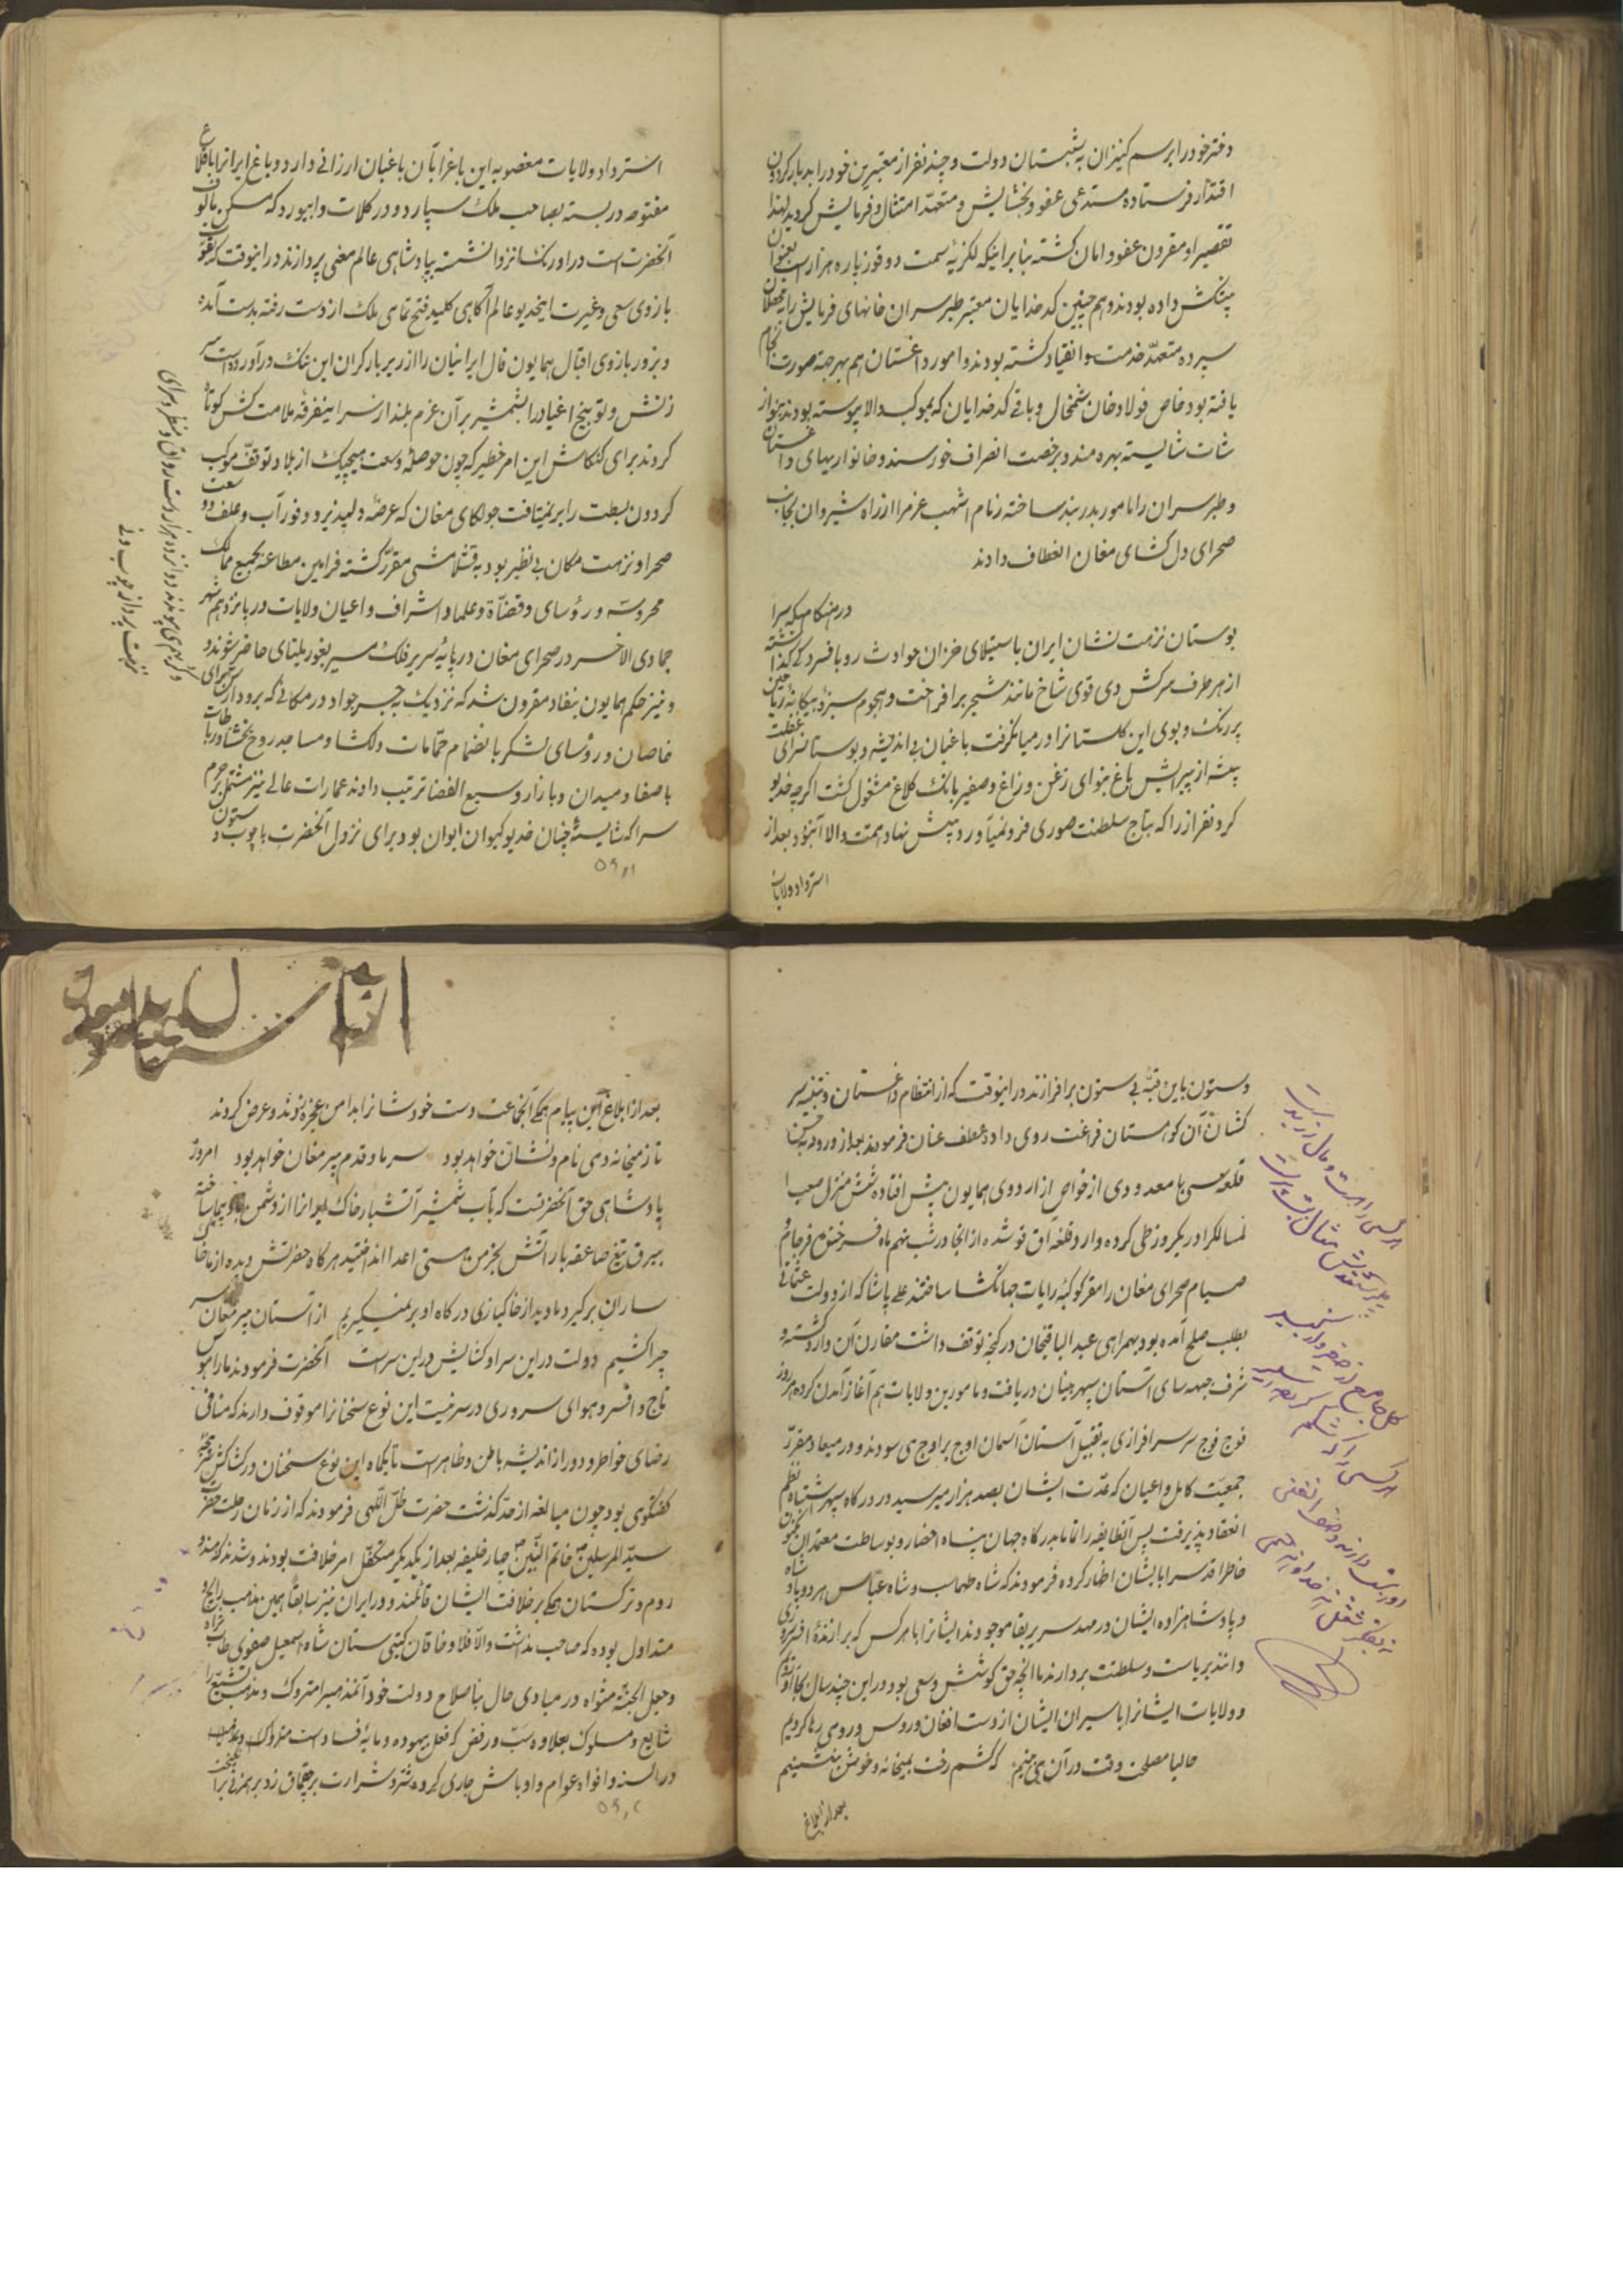 دختر خود را برسم کنیزان به شبستان دولت و چند نفر از معتبرین خود را بدربار کردون
اقتدار فرستاده مستدعی عفو و بخشایش و متعهد امتثال و فرمایش کردید لهذا
تقصیر او مقرون عفو و امان کشته بنا بر اینکه لکزیه سمت دوقوز پاره هزار اسب بعنوان
پیشکش داده بودند و هم چنین کدخدایان معتبر طبرسران خانهای فرمایش را بمحصلان
سپرده متعهد خدمت و انقیاد کشته بودند و امور داغستان هم بهر جهة صورت انجام
یافته بود خاص فولاد خان شمخال و باقی کدخدایان که بموکب والا پیوسته بودند بنواز
شات شایسته بهره مند و برخصت انصراف خورسند و خانواریهای داغستان
و طبرسران را مامور بدربند ساخته زمام اشهب عزم را از راه شیروان بجانب
صحرای دل کشای مغان انعطاف دادند
در هنکامیکه سرا
بوستان نزهت نشان ایران باستیلای خزان حوادث رو بافسردکی کذاشته
از هر طرف سرکش دی قوی شاخ مانند شجر برافراخت و هجوم سبزه بیکانه زیاحین
پر رنک و بوی این کلستانرا در میان کرفت باغبان بی اندیشه و بوستانسرای غفلت
پیشه از پیرایش باغ بنوای زغن و زاغ و صفیر بانک کلاغ مشغول کشت اکرچه خدیو
کردنفراز را که بتاج سلطنت صوری فرو نمیآورد پیش نهاد همت والا آن بود بعد از
استرداد ولایات

استرداد ولایات مغصوبه این باغ را بآن باغبان ارزانی دارد و باغ ایرانرا با قلاع
مفتوحه دربسته بصاحب ملک سپارد و در کلات و ابیورد که مسکن مالوف
آنحضرت است در اورنک انزوا نشسته بپادشاهی عالم معنی پردازند در اینوقت که بقوت
بازوی سعی و غیرت اینخدیو عالم آکاهی کلید فتح تمامی ملک از دست رفته بدست آمده
و بزور بازوی اقبال همایون فال ایرانیان را از زیر بار کران این ننک درآورده است سر
زنش و توبیخ اغیار را بشمشیر بر آن عزم بلند از سر اینفرقه ملامت کش کوتاه
کردند برای کنکاش این امر خطیر که چون حوصله وسعت هیچیک از بلاد توقف موکب
کردون بسطت را بر نمیتافت جولکای مغان که عرصه دلپذیر و وفور آب و علف و وسعت
صحرا و نزهت مکان بی نظیر بود به قشلامشی مقرر کشته فرامین مطاعه بجمیع ممالک
محروسه و رؤسای و قضاة و علما و اشراف و اعیان ولایات در پانزدهم شهر
جمادی الاخر در صحرای مغان در پایه سریر فلک مسیر بغوریلتای حاضر شوند و
و نیز حکم همایون بنفاذ مقرون شد که نزدیک به جسر جواد در مکانی که برود ارس برای
خاصان و رؤسای لشکر بانضمام حمامات دلکشا و مساجد روح بخشا و رباطات
با صفا و میدان و بازار وسیع الفضا ترتیب دادند عمارات عالی نیز مشتمل بر حرم
سرا که شایسته چنان خدیو کیوان ایوان بود برای نزول آنحضرت با چوب و ستون
دو کرسی پیوندند دوازده هزار دست رواق و منظر و سرای
نزهت پرداز چوب و نی

و ستون باین قبه بی ستون برافرازند در اینوقت که از انتظام داغستان و تنبیه سر
کشان آن کوهستان فراغت روی داد عطف عنان فرمودند بعد از ورود به حسن
قلعه سی با معدودی از خواص از اردوی همایون پیش افتاده شش منزل صعب ا
لمسالک را در یکروز طی کرده وارد قلعه آق قو شده از انجا در شب نهم ماه فرخنده فرجام
صیام صحرای مغان را مقر کوکبه رایات جهانکشا ساختند علی پاشا که از دولت عثمانی
بطلب صلح آمده بود بهمراهی عبد الباقیخان در کنجه توقف داشت مقارن آن وارد کشته و
شرف جبهه سای آستان سپهر بنیان دریافت و مامورین ولایات هم آغاز آمدن کرده هر روز
فوج فوج سر سرافرازی به تقبیل آستان آسمان اوج بر اوج می سودند و در میعاد مقرر
جمعیت کامل و اعیان که عدت ایشان بصد هزار میرسید در درکاه سپهر اشتباه نظم
انعقاد پذیرفت پس آنطایفه را تمامآ بدرکاه جهان پناه احضار و بوساطت معتمدان مکنون
خاطر اقدس را بایشان اظهار کرده فرمودند که شاه طهماسب و شاه عباس هر دو پادشاه
و پادشاهزاده ایشان در مهد سریر بقا موجودند ایشانرا یا هر کس که برازنده افسر سروری
دانند بریاست و سلطنت بردارند ما آنچه حق کوشش و سعی بود در این چند سال بجا آوردیم
و ولایات ایشانرا با سیران ایشان از دست افغان و روس و رومی رها کردیم
حالیا مصلحت وقت در آن می بینم که کشم رخت بمیخانه و خوش بنشینم
بعد از ابلاغ

بعد از ابلاغ این پیام همکی آنجماعت دست خود شانرا بدامن عجز زنوند و عرض کردند
تا ز میخانه و می نام و نشان خواهد بود سر ما و قدم پیر مغان خواهد بود امروز
پادشاهی حق آنحضرتست که بآب شمشیر آتشبار خاک ایرانرا از دشمن
ببرق تیغ صاعقه بار آتش بخرمن هستی اعدا انداختید هر کاه حضرتش دیده از ما خا
ساران برکیرد ما دیده از خاکبازی درکاه او بر نمیکیریم از آستان پیر مغان سر
چرا کشیم دولت در این سرا و کشایش در این سراست آنحضرت فرمودند ما را هوس
تاج و افسر و هوای سروری در سر نیست این نوع سخنانرا موقوف دارند که منافی
رضای خواطر و دور از اندیشه باطن و ظاهر است تا یکماه این نوع سخنان در کشاکش
کفتکوی بود چون مبالغه از حد کذشت حضرت ظل اللهی فرمودند که از زمان رحلت حضرت
سید المرسلین خاتم النبیین چهار خلیفه بعد از یکدیکر متکفل امر خلافت بودند و شدند که هند و
روم و ترکستان همکی بر خلافت ایشان قائلند و در ایران نیز سابقآ همین مذهب رایج و
متداول بوده که صاحب مذاشت والافلا و خاقان کیتی ستان شاه اسمعیل صفوی طاب ثراه
و جعل الجنة مثواه در مبادی حال بنا صلاح دولت خود آنمذهب را متروک و مذهب تشیع را
شایع و مسلوک بعلاوه سب و رفض که فعل بیهوده و مایه فساد است
در السنه و افواه عوام و اوباش جاری کرده شرر شرارت بر چقماق زد